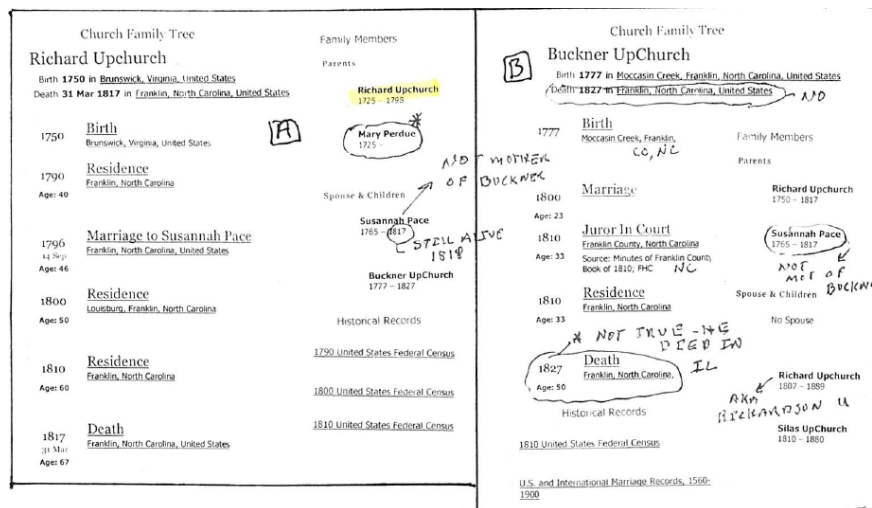 Church Family Tree
Richard Upchurch
Birth 1750 in Brunswick, Virginia, United States
Death 31 Mar 1817 in Franklin, North Carolina, United States
A
1750
Birth
Brunswick, Virginia, United States
1790
Residence
Franklin, North Carolina
Age: 40
1796
14 Sep
Age: 46
Marriage to Susannah Pace
Franklin, North Carolina, United States
1800
Residence
Louisburg, Franklin, North Carolina
Age: 50
1810
Residence
Franklin, North Carolina
Age: 60
1817
31 Mar
Age: 67
Death
Franklin, North Carolina, United States
Family Members
Parents
Richard Upchurch
1725 – 1798
*
Mary Perdue
1725 -
NOT MOTHER
OF BUCKNER
Spouse & Children
Susannah Pace
1765 – 1817
STILL ALIVE
1818
Buckner UpChurch
1777 – 1827
Historical Records
1790 United States Federal Census
1800 United States Federal Census
1810 United States Federal Census
Church Family Tree
B
Buckner UpChurch
Birth 1777 in Moccasin Creek, Franklin, North Carolina, United States
Death 1827 in Franklin, North Carolina, United States
NO
1777
Birth
Moccasin Creek, Franklin,
CO, NC
1800
Marriage
Age: 23
1810
Juror In Court
Franklin County, North Carolina
Age: 33
Source: Minutes of Franklin County
Book of 1810; FHC
NC
1810
Residence
Franklin, North Carolina
Age: 33
* NOT TRUE - HE
DIED IN
IL
1827
Death
Franklin, North Carolina,
Age: 50
Historical Records
1810 United States Federal Census
U.S. and International Marriage Records, 1560-
1900
Family Members
Parents
Richard Upchurch
1750 – 1817
Susannah Pace
1765 – 1817
NOT
OF
Spouse & Children
No Spouse
Richard Upchurch
1807 – 1889
AKA
RICHARDSON U
Silas UpChurch
1810 – 1880